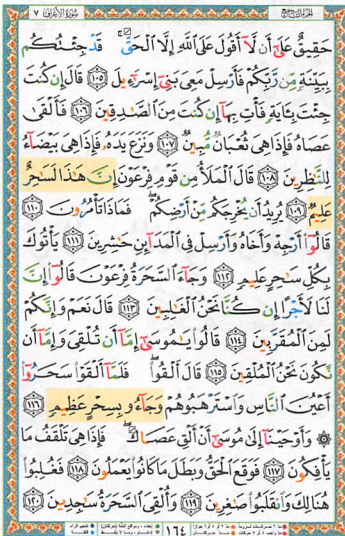 سُورَةُ الأَعْرَافِ ٧ الجزء التاسع
حَقِيقٌ عَلَىٰٓ أَن لَّآ أَقُولَ عَلَى ٱللَّهِ إِلَّا ٱلْحَقَّ ۚ قَدْ جِئْتُكُم
بِبَيِّنَةٍ مِّن رَّبِّكُمْ فَأَرْسِلْ مَعِىَ بَنِىٓ إِسْرَٰٓءِيلَ ١٠٥ قَالَ إِن كُنتَ
جِئْتَ بِـَٔايَةٍ فَأْتِ بِهَآ إِن كُنتَ مِنَ ٱلصَّـٰدِقِينَ ١٠٦ فَأَلْقَىٰ
عَصَاهُ فَإِذَا هِىَ ثُعْبَانٌ مُّبِينٌ ١٠٧ وَنَزَعَ يَدَهُۥ فَإِذَا هِىَ بَيْضَآءُ
لِلنَّـٰظِرِينَ ١٠٨ قَالَ ٱلْمَلَأُ مِن قَوْمِ فِرْعَوْنَ إِنَّ هَـٰذَا لَسَـٰحِرٌ
عَلِيمٌ ١٠٩ يُرِيدُ أَن يُخْرِجَكُم مِّنْ أَرْضِكُمْ ۖ فَمَاذَا تَأْمُرُونَ ١١٠
قَالُوٓا۟ أَرْجِهْ وَأَخَاهُ وَأَرْسِلْ فِى ٱلْمَدَآئِنِ حَـٰشِرِينَ ١١١ يَأْتُوكَ
بِكُلِّ سَـٰحِرٍ عَلِيمٍ ١١٢ وَجَآءَ ٱلسَّحَرَةُ فِرْعَوْنَ قَالُوٓا۟ إِنَّ
لَنَا لَأَجْرًا إِن كُنَّا نَحْنُ ٱلْغَـٰلِبِينَ ١١٣ قَالَ نَعَمْ وَإِنَّكُمْ
لَمِنَ ٱلْمُقَرَّبِينَ ١١٤ قَالُوا۟ يَـٰمُوسَىٰٓ إِمَّآ أَن تُلْقِىَ وَإِمَّآ أَن
نَّكُونَ نَحْنُ ٱلْمُلْقِينَ ١١٥ قَالَ أَلْقُوا۟ ۖ فَلَمَّآ أَلْقَوْا۟ سَحَرُوٓا۟
أَعْيُنَ ٱلنَّاسِ وَٱسْتَرْهَبُوهُمْ وَجَآءُو بِسِحْرٍ عَظِيمٍ ١١٦
۞ وَأَوْحَيْنَآ إِلَىٰ مُوسَىٰٓ أَنْ أَلْقِ عَصَاكَ ۖ فَإِذَا هِىَ تَلْقَفُ مَا
يَأْفِكُونَ ١١٧ فَوَقَعَ ٱلْحَقُّ وَبَطَلَ مَا كَانُوا۟ يَعْمَلُونَ ١١٨ فَغُلِبُوا۟
هُنَالِكَ وَٱنقَلَبُوا۟ صَـٰغِرِينَ ١١٩ وَأُلْقِىَ ٱلسَّحَرَةُ سَـٰجِدِينَ ١٢٠
١٦٤